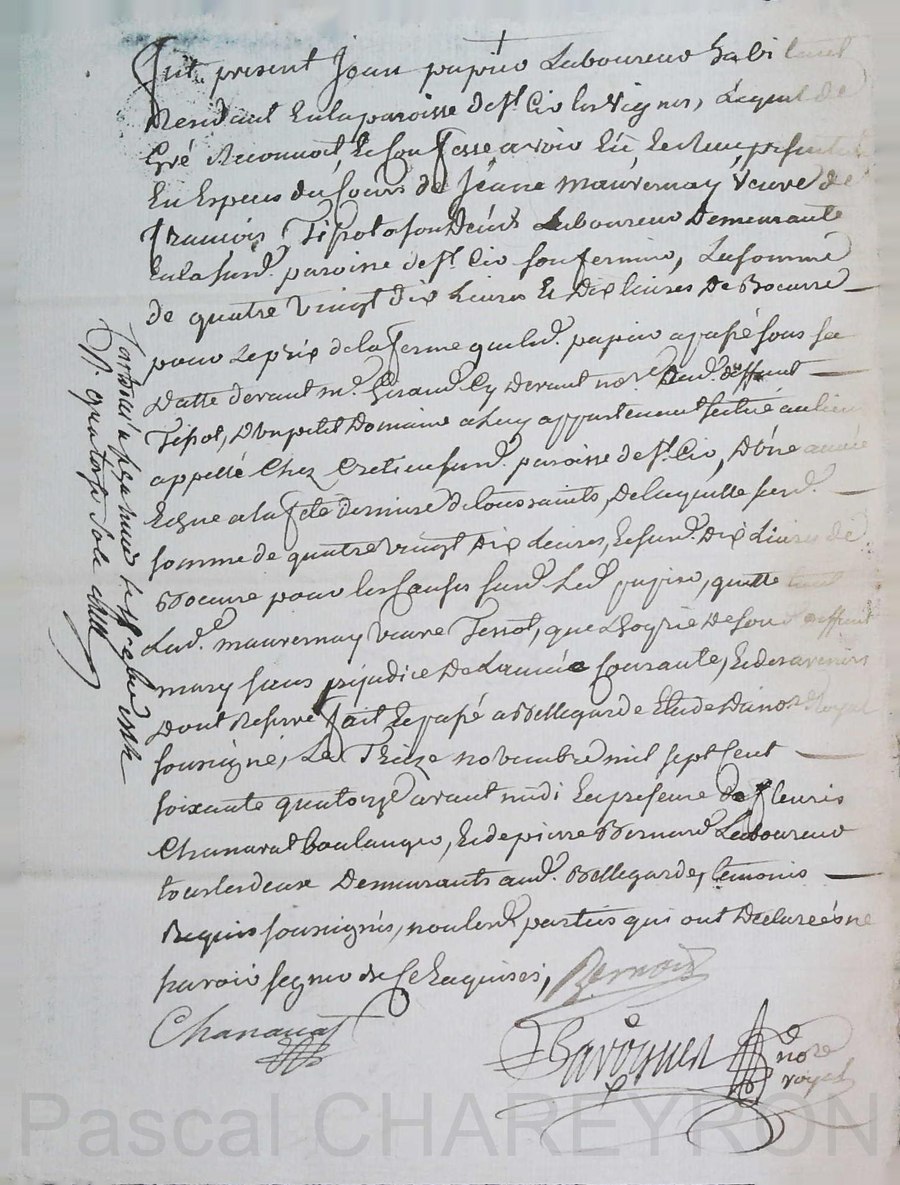 fut present Jean papiou Laboureur habitant
Residant En la paroisse de St. Cir les Vignes, Lequel de
Gré Reconnoit, Et Confesse avoir Eü Et Receu, presentemt
En Especes du Cours de Jeane mauvernay Veuve de
francois Tissot a son Deüx Laboureur Demeurante
En la susd. paroisse de St. Cir Son fermier, La somme
de quatre vingt dix Livres Et Dix livres De Boeurre
pour Le prix de la ferme que led. papiou a passé sous sa
Datte devant me. Giraud. Cy Devant nore. Aud. deffunt
Tissot, D'un petit Domaine a Luy appartement scitué au lieu
appellé Chez Cretien susd. paroisse de St. Cir, D'une année
Echue a la fete derniere de toussaints, De laquelle susd.
somme de quatre vingt Dix Livres, Et susd. Dix Livres de
Boeurre pour les Causes susd. Led. papiou, quitte tant
Lad. mauvernay Veuve Tissot, que L'hoyrie De son deffunt
mary sans prejudice De L'année Courante, Et des avenirs
Dont Reserve fait Et passé a Bellegarde Etude Du nore Royal
soussigné, Le Treize novembre mil sept Cent
soixante quatorze avant midi En presence de fleuris
Chanavat boulanger, Et de pierre Bernard Laboureur
tous les deux Demeurants aud. Bellegarde, temoins
Requis soussignés, non lesd. parties qui ont Declarées ne
scavoir signer de Ce Enquises,
Bernard
Chanavat
nore
royal
R. quatorze sols
Pascal CHAREYRON